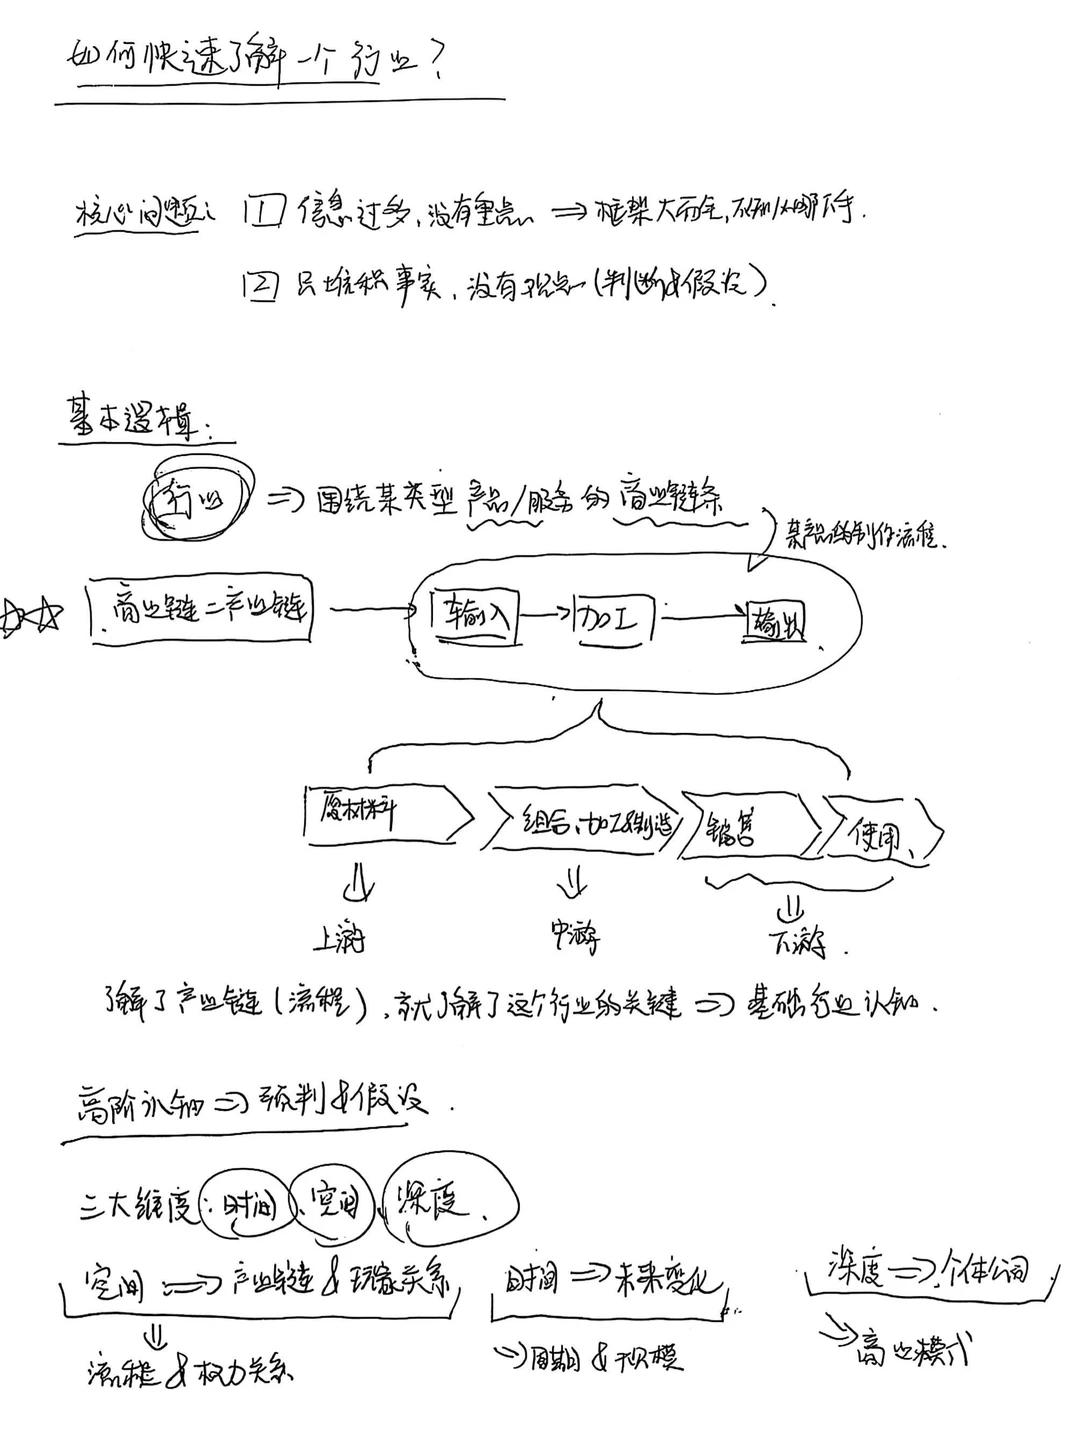 如何快速了解一个行业？
核心问题： 1 信息过多，没有重点 ⇒ 框架大而全，不知从哪下手.
2 只堆积事实，没有观点（判断&假设）.
基本逻辑：
行业 ⇒ 围绕某类型产品/服务的商业链条
某产品的制作流程.
商业链=产业链 → 输入 → 加工 → 输出
原材料 组合、加工&制造 销售 使用
上游 中游 下游.
了解了产业链（流程），就了解了这个行业的关键 ⇒ 基础行业认知.
高阶认知 ⇒ 预判&假设.
三大维度：时间、空间、深度.
空间 ⇒ 产业链&玩家关系 时间 ⇒ 未来变化 深度 ⇒ 个体公司
流程&权力关系 ⇒ 周期&规模 ⇒ 商业模式